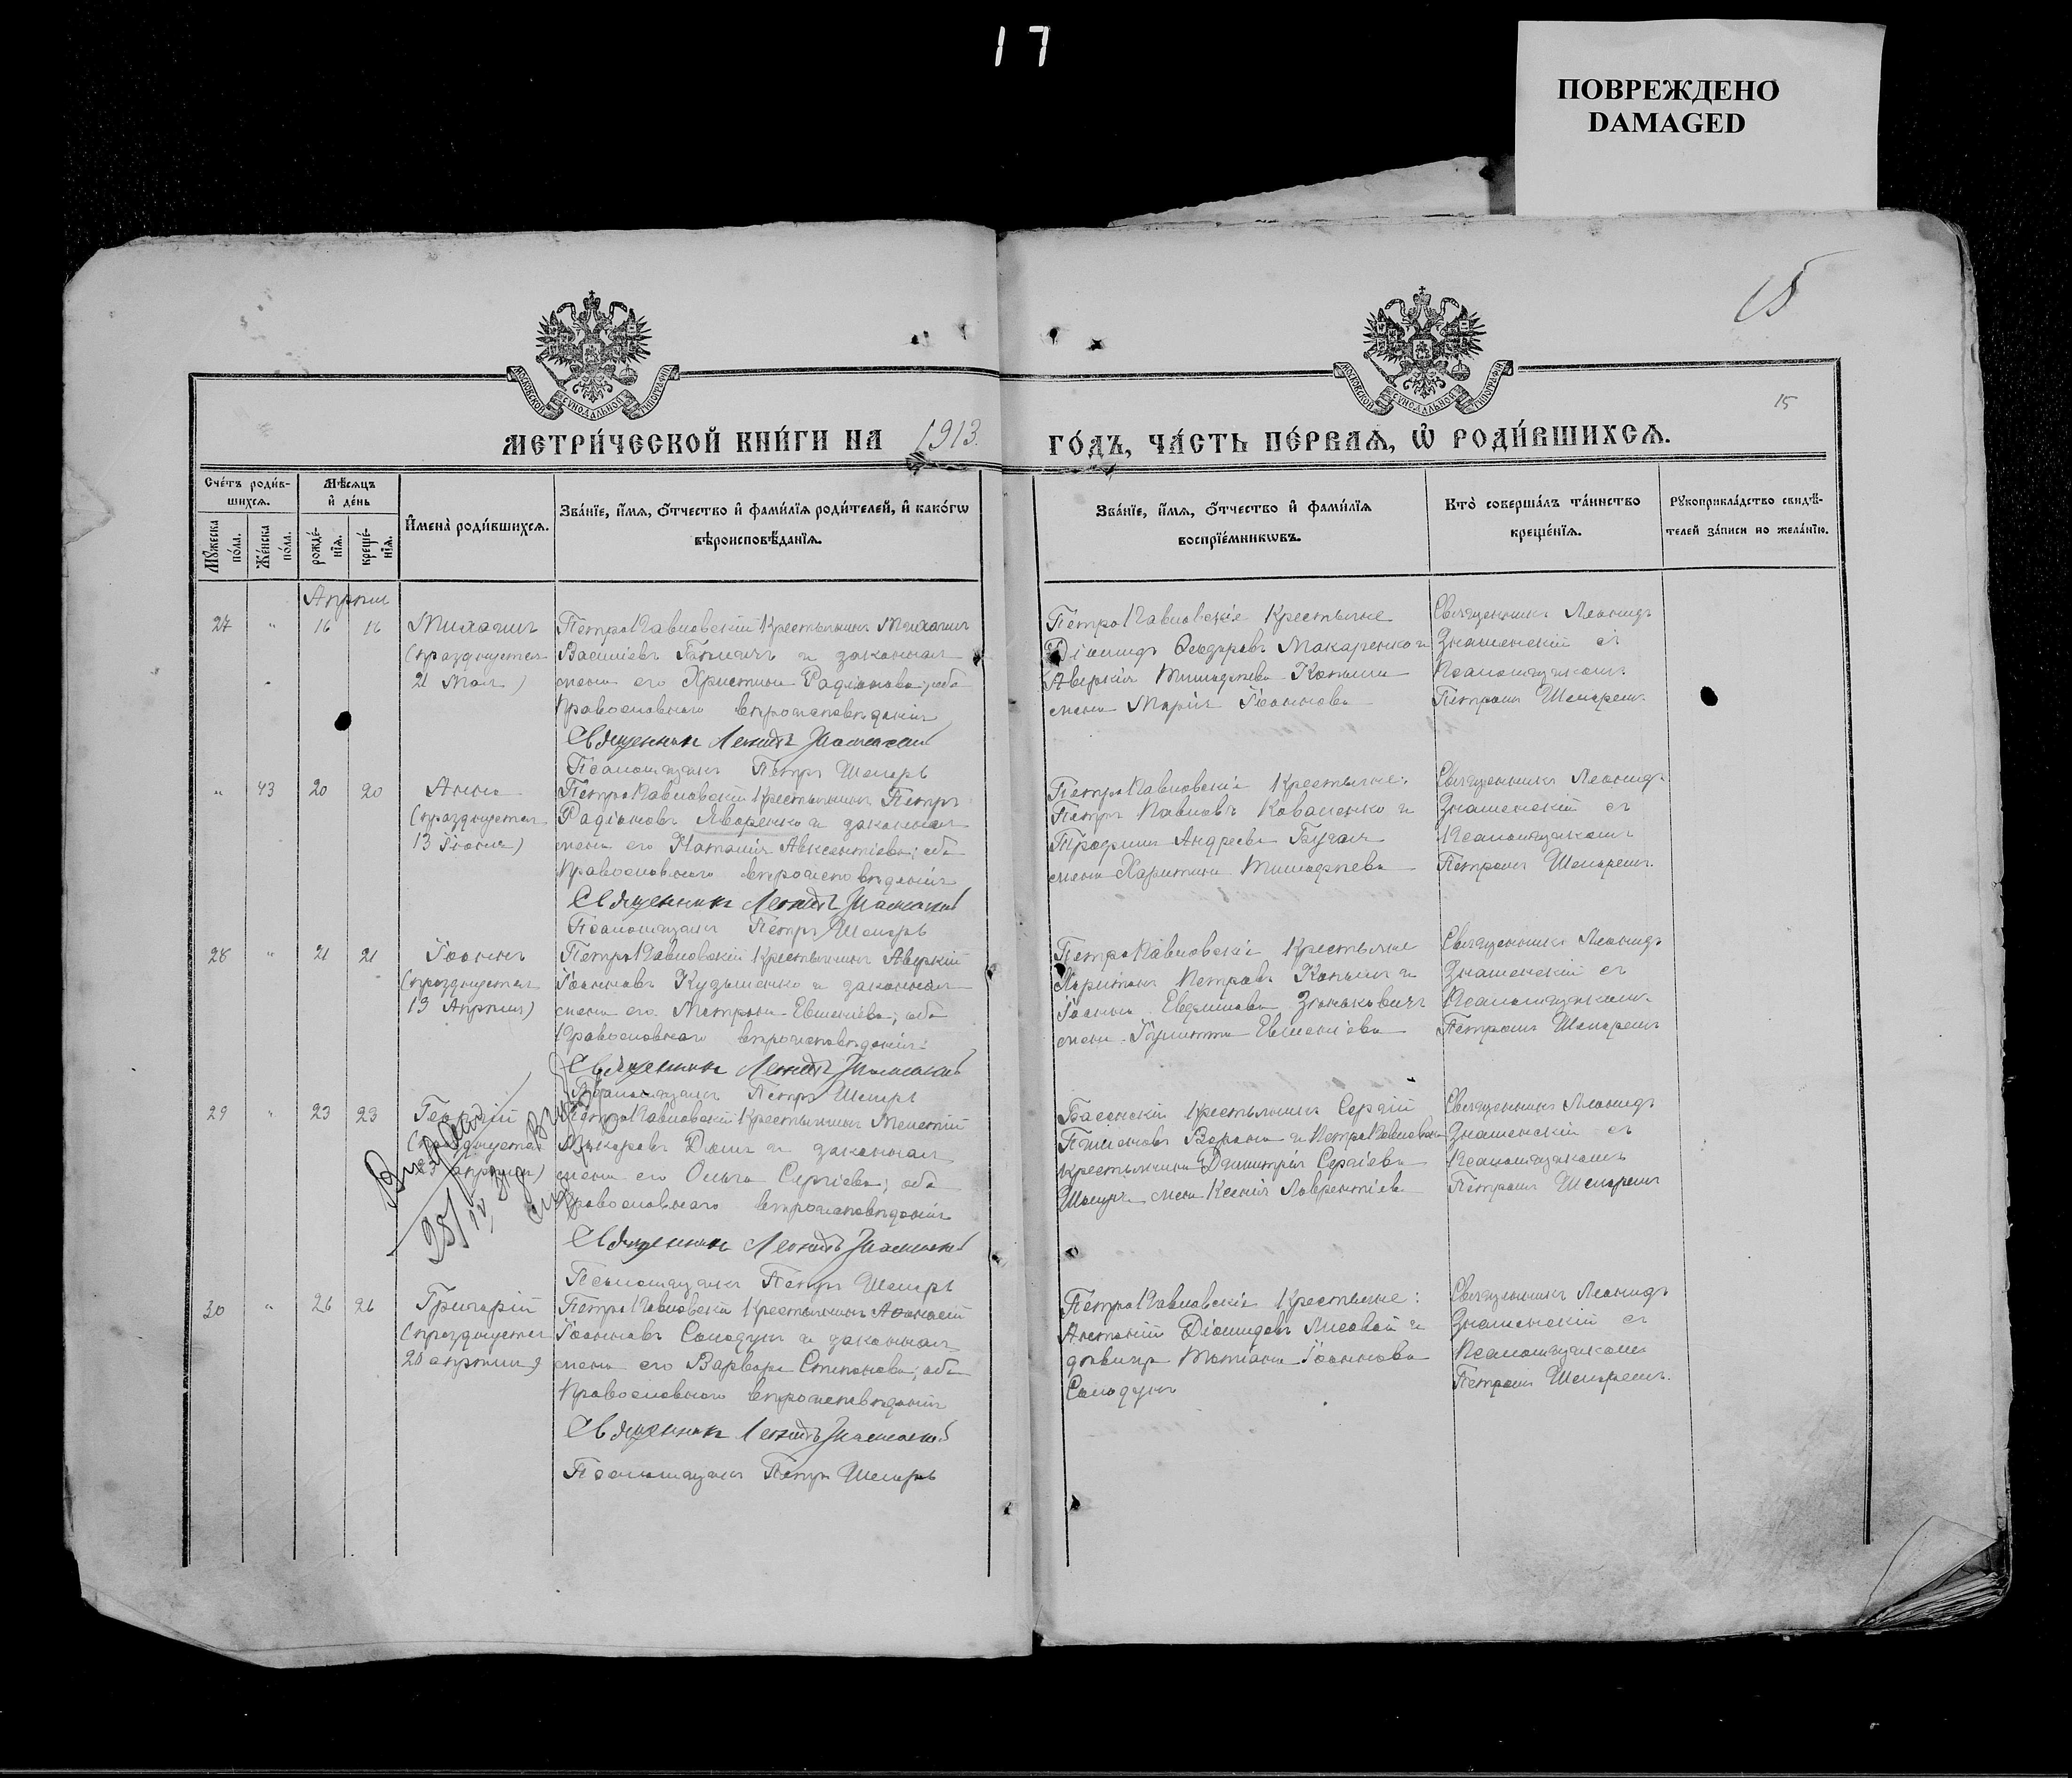 17
ПОВРЕЖДЕНО
DAMAGED
15
15
МОСКОВСКОЙ СУНОДАЛЬНОЙ ТИПОГРАФІИ
МОСКОВСКОЙ СУНОДАЛЬНОЙ ТИПОГРАФІИ
МЕТРИ́ЧЕСКОЙ КНИ́ГИ НА 1913. ГО́ДЪ, ЧА́СТЬ ПЕ́РВАѦ, Ѡ҆ РОДИ́ВШИХСѦ.
Сче́тъ роди́в-
шихсѧ.
Мꙋжеска по́ла.
Же́нска по́ла.
Мѣ́сѧцъ
и҆ де́нь
рожде́-
нїѧ.
креще́-
нїѧ.
И҆мена̀ роди́вшихсѧ.
Зва́нїе, и҆́мѧ, ѻ҆́тчество и҆ фами́лїѧ роди́телей, и҆ како́гѡ
вѣроисповѣ́данїѧ.
Зва́нїе, и҆́мѧ, ѻ҆́тчество и҆ фами́лїѧ
воспрїе́мникѡвъ.
Кто̀ соверша́лъ та́инство
креще́нїѧ.
Рꙋкоприкла́дство свидѣ́-
телей за́писи по жела́нїю.
Апрѣль
27 " 16 16
Михаилъ
(празднуется
21 Мая)
ПетроПавловскій крестьянинъ Михаилъ
Василіевъ и законная
жена его Христина Радіонова; оба
Православнаго вѣроисповѣданія
Священникъ Леонидъ Знаменскій
Псаломщикъ Петръ Шепарь
ПетроПавловскіе крестьяне
Діомидъ Ѳедоровъ Макаренко и
Аверкія Тимоѳеева
жена Марія Іоаннова
Священникъ Леонидъ
Знаменскій съ
Псаломщикомъ
Петромъ Шепаремъ.
" 43 20 20
Анна
(празднуется
13 Іюня)
ПетроПавловскій крестьянинъ Петръ
Радіоновъ Яворенко и законная
жена его Наталія Авксентіева; оба
Православнаго вѣроисповѣданія
Священникъ Леонидъ Знаменскій
Псаломщикъ Петръ Шепарь
ПетроПавловскіе крестьяне:
Петръ Павловъ Коваленко и
Трофима Андреева Бугая
жена Харитина Тимоѳеева
Священникъ Леонидъ
Знаменскій съ
Псаломщикомъ
Петромъ Шепаремъ.
28 " 21 21
Іоаннъ
(празднуется
19 Апрѣля)
ПетроПавловскій крестьянинъ Аверкій
Іоанновъ Кузьменко и законная
жена его Матрона Евменіева; оба
Православнаго вѣроисповѣданія:
Священникъ Леонидъ Знаменскій
Псаломщикъ Петръ Шепарь
ПетроПавловскіе крестьяне
Харитонъ Петровъ и
Іоанна Евфимова Зинькевича
жена Іулитта Евменіева
Священникъ Леонидъ
Знаменскій съ
Псаломщикомъ
Петромъ Шепаремъ
29 " 23 23
Георгій
(празднуется
23 апрѣля)
ПетроПавловскій крестьянинъ Мелетій
Макаровъ и законная
жена его Ольга Сергіева; оба
Православнаго вѣроисповѣданія
Священникъ Леонидъ Знаменскій
Псаломщикъ Петръ Шепарь
крестьянинъ Сергій
Ворона и ПетроПавловск.
крестьянина Димитрія Сергіева
жена Ксенія Лаврентіева
Священникъ Леонидъ
Знаменскій съ
Псаломщикомъ
Петромъ Шепаремъ
30 " 26 26
Григорій
(празднуется
20 апрѣля)
ПетроПавловскій крестьянинъ Аѳанасій
Іоанновъ Солодунъ и законная
жена его Варвара Стефанова; оба
Православнаго вѣроисповѣданія
Священникъ Леонидъ Знаменскій
Псаломщикъ Петръ Шепарь
ПетроПавловскіе крестьяне:
Антоній Діомидовъ Лисовой и
дѣвица Татіана Іоаннова
Солодунъ
Священникъ Леонидъ
Знаменскій съ
Псаломщикомъ
Петромъ Шепаремъ.